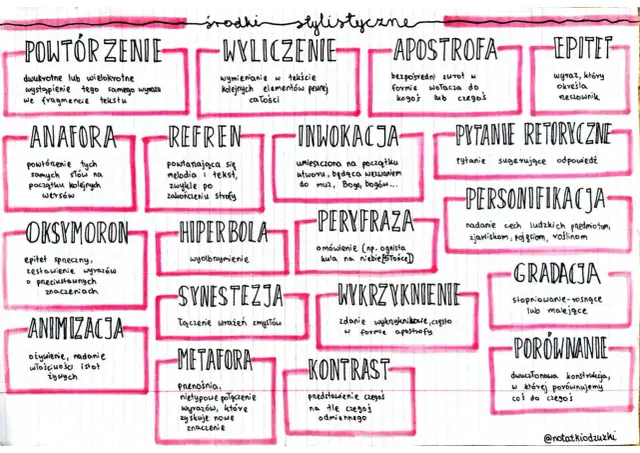 środki stylistyczne
POWTÓRZENIE
dwukrotne lub wielokrotne
wystąpienie tego samego wyrazu
we fragmencie tekstu
WYLICZENIE
wymienianie w tekście
kolejnych elementów pewnej
całości
APOSTROFA
bezpośredni zwrot w
formie wołacza do
kogoś lub czegoś
EPITET
wyraz, który
określa
rzeczownik
ANAFORA
powtórzenie tych
samych słów na
początku kolejnych
wersów
REFREN
powtarzająca się
melodia i tekst,
zwykle po
zakończeniu strofy
INWOKACJA
umieszczona na początku
utworu, będąca wezwaniem
do muz, Boga, bogów...
PYTANIE RETORYCZNE
pytanie sugerujące odpowiedź
PERSONIFIKACJA
nadanie cech ludzkich przedmiotom,
zjawiskom, pojęciom, roślinom
OKSYMORON
epitet sprzeczny,
zestawienie wyrazów
o przeciwstawnych
znaczeniach
HIPERBOLA
wyolbrzymienie
PERYFRAZA
omówienie (np. ognista
kula na niebie[Słońce])
GRADACJA
stopniowanie-rosnące
lub malejące
SYNESTEZJA
łączenie wrażeń zmysłów
WYKRZYKNIENIE
zdanie wykrzyknikowe, często
w formie apostrofy
ANIMIZACJA
ożywienie, nadanie
właściwości istot
żywych
METAFORA
przenośnia,
nietypowe połączenie
wyrazów, które
zyskuje nowe
znaczenie
KONTRAST
przedstawienie czegoś
na tle czegoś
odmiennego
PORÓWNANIE
dwuczłonowa konstrukcja,
w której porównujemy
coś do czegoś
@notatkiodzuzki